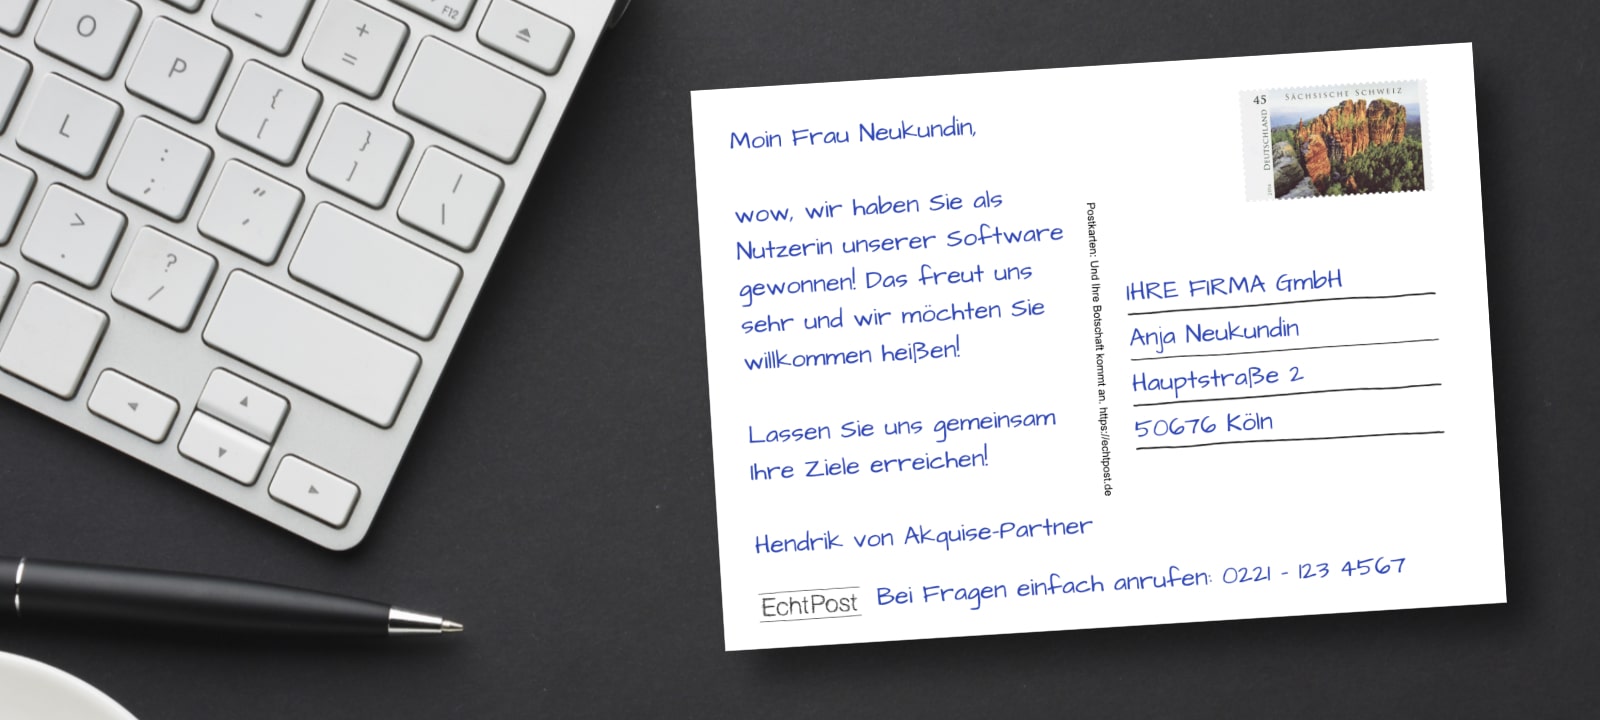 F12
O
-
+
=
P
{
[
L
}
]
:
;
|
\
"
,
>
.
?
/
Moin Frau Neukundin,
wow, wir haben Sie als
Nutzerin unserer Software
gewonnen! Das freut uns
sehr und wir möchten Sie
willkommen heißen!
Lassen Sie uns gemeinsam
Ihre Ziele erreichen!
Hendrik von Akquise-Partner
EchtPost
Bei Fragen einfach anrufen: 0221 - 123 4567
Postkarten: Und Ihre Botschaft kommt an. https://echtpost.de
45
SÄCHSISCHE SCHWEIZ
DEUTSCHLAND
IHRE FIRMA GmbH
Anja Neukundin
Hauptstraße 2
50676 Köln